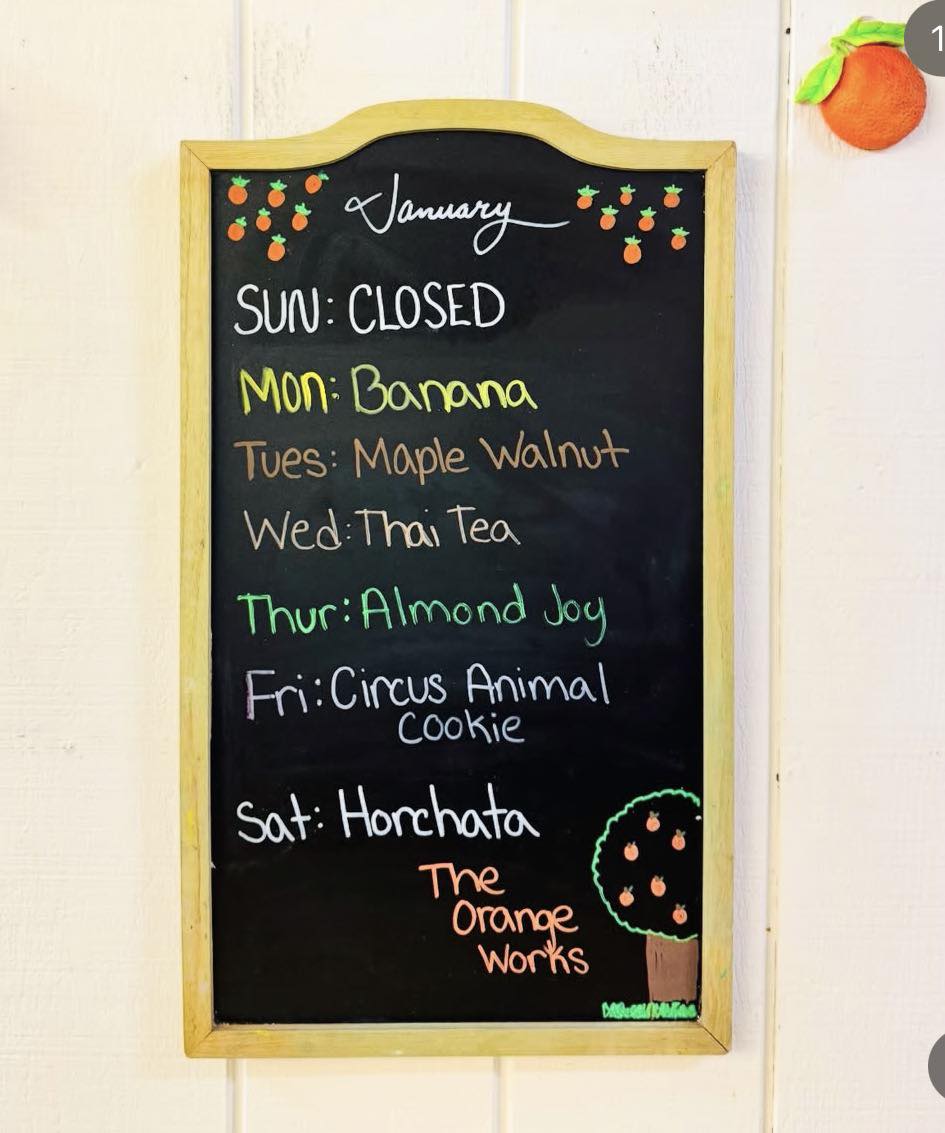 1
January
SUN: CLOSED
Mon: Banana
Tues: Maple Walnut
Wed: Thai Tea
Thur: Almond Joy
Fri: Circus Animal
Cookie
Sat: Horchata
The
Orange
Works